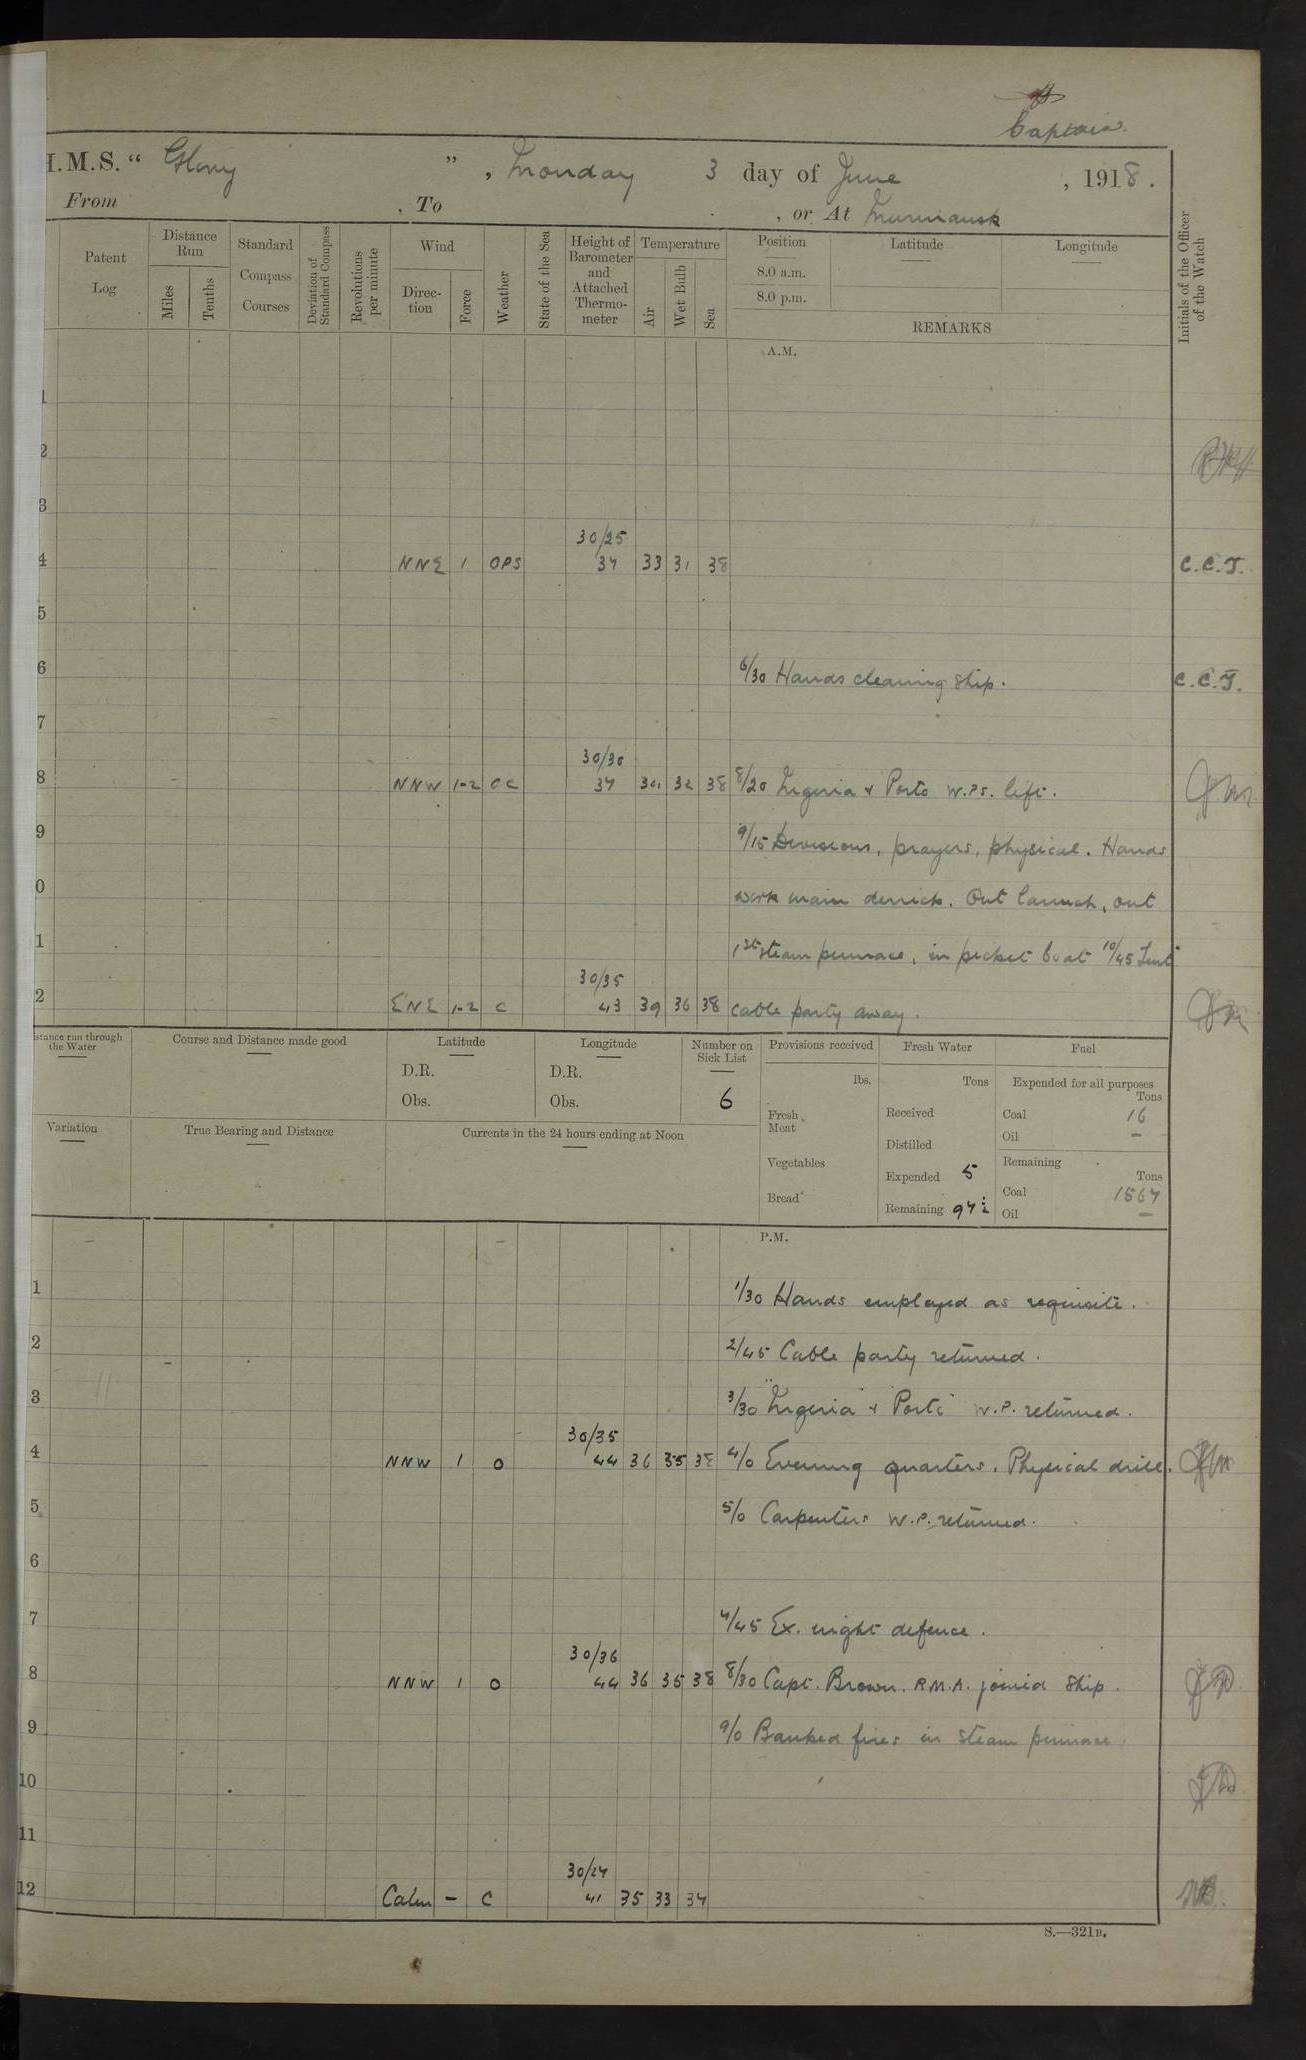 Captain.
H.M.S. "Glory", Monday 3 day of June, 1918.
From , To , or At Murmansk
Patent Log
Distance Run
Miles
Tenths
Standard Compass Courses
Deviation of Standard Compass
Revolutions per minute
Wind
Direction
Force
Weather
State of the Sea
Height of Barometer and Attached Thermometer
Temperature
Air
Wet Bulb
Sea
Position
8.0 a.m.
8.0 p.m.
Latitude
Longitude
REMARKS
Initials of the Officer of the Watch
A.M.
1
2
3
30/25
4 NNE 1 OPS 37 33 31 38 C.C.J.
5
6 6/30 Hands cleaning ship. C.C.J.
7
30/30
8 NNW 1-2 OC 37 34 32 38 8/20 Nigeria & Porto W.Ps. left.
9 9/15 Divisions, prayers, physical. Hands
0 work main derrick. Out launch, out
1 1st steam pinnace, in picket boat 10/45 Sent
30/35
2 ENE 1-2 C 43 39 36 38 cable party away.
Distance run through the Water
Course and Distance made good
Latitude
D.R.
Obs.
Longitude
D.R.
Obs.
Number on Sick List
6
Provisions received
lbs.
Fresh Meat
Vegetables
Bread
Fresh Water
Tons
Received
Distilled
Expended 5
Remaining 97½
Fuel
Expended for all purposes
Tons
Coal 16
Oil –
Remaining
Tons
Coal 1567
Oil –
Variation
True Bearing and Distance
Currents in the 24 hours ending at Noon
P.M.
1 1/30 Hands employed as requisite.
2 2/45 Cable party returned.
3 3/30 "Nigeria" & "Porto" W.P. returned.
30/35
4 NNW 1 O 44 36 35 38 4/0 Evening quarters. Physical drill.
5 5/0 Carpenters W.P. returned.
6
7 7/45 Ex. night defence.
30/36
8 NNW 1 O 44 36 35 38 8/30 Capt. Brown. R.M.A. joined ship.
9 9/0 Banked fires in steam pinnace
10
11
30/27
12 Calm – C 41 35 33 37
S.—321B.